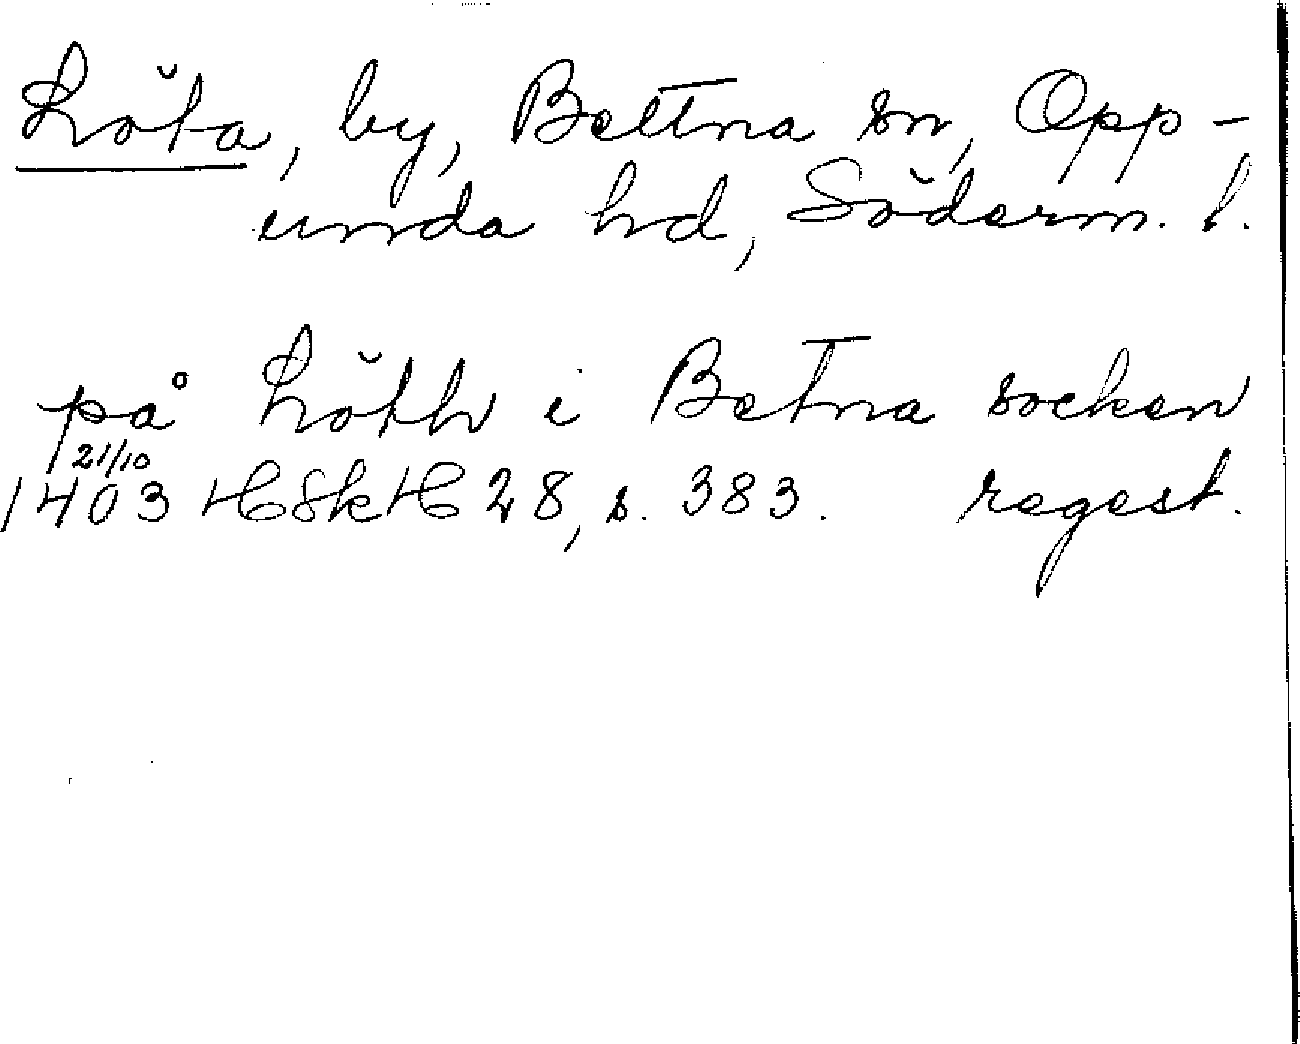 Löta, by, Bettna sn, Opp-
unda hd, Söderm. l.
på Löth i Betna socken
21/10
1403 HSkH 28, s. 383. regest.